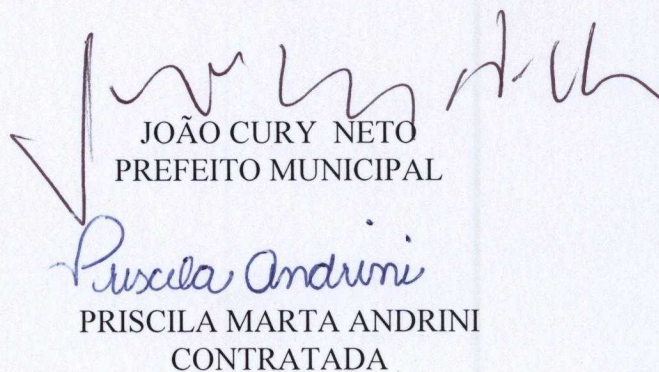 JOÃO CURY NETO
PREFEITO MUNICIPAL
Priscila Andrini
PRISCILA MARTA ANDRINI
CONTRATADA